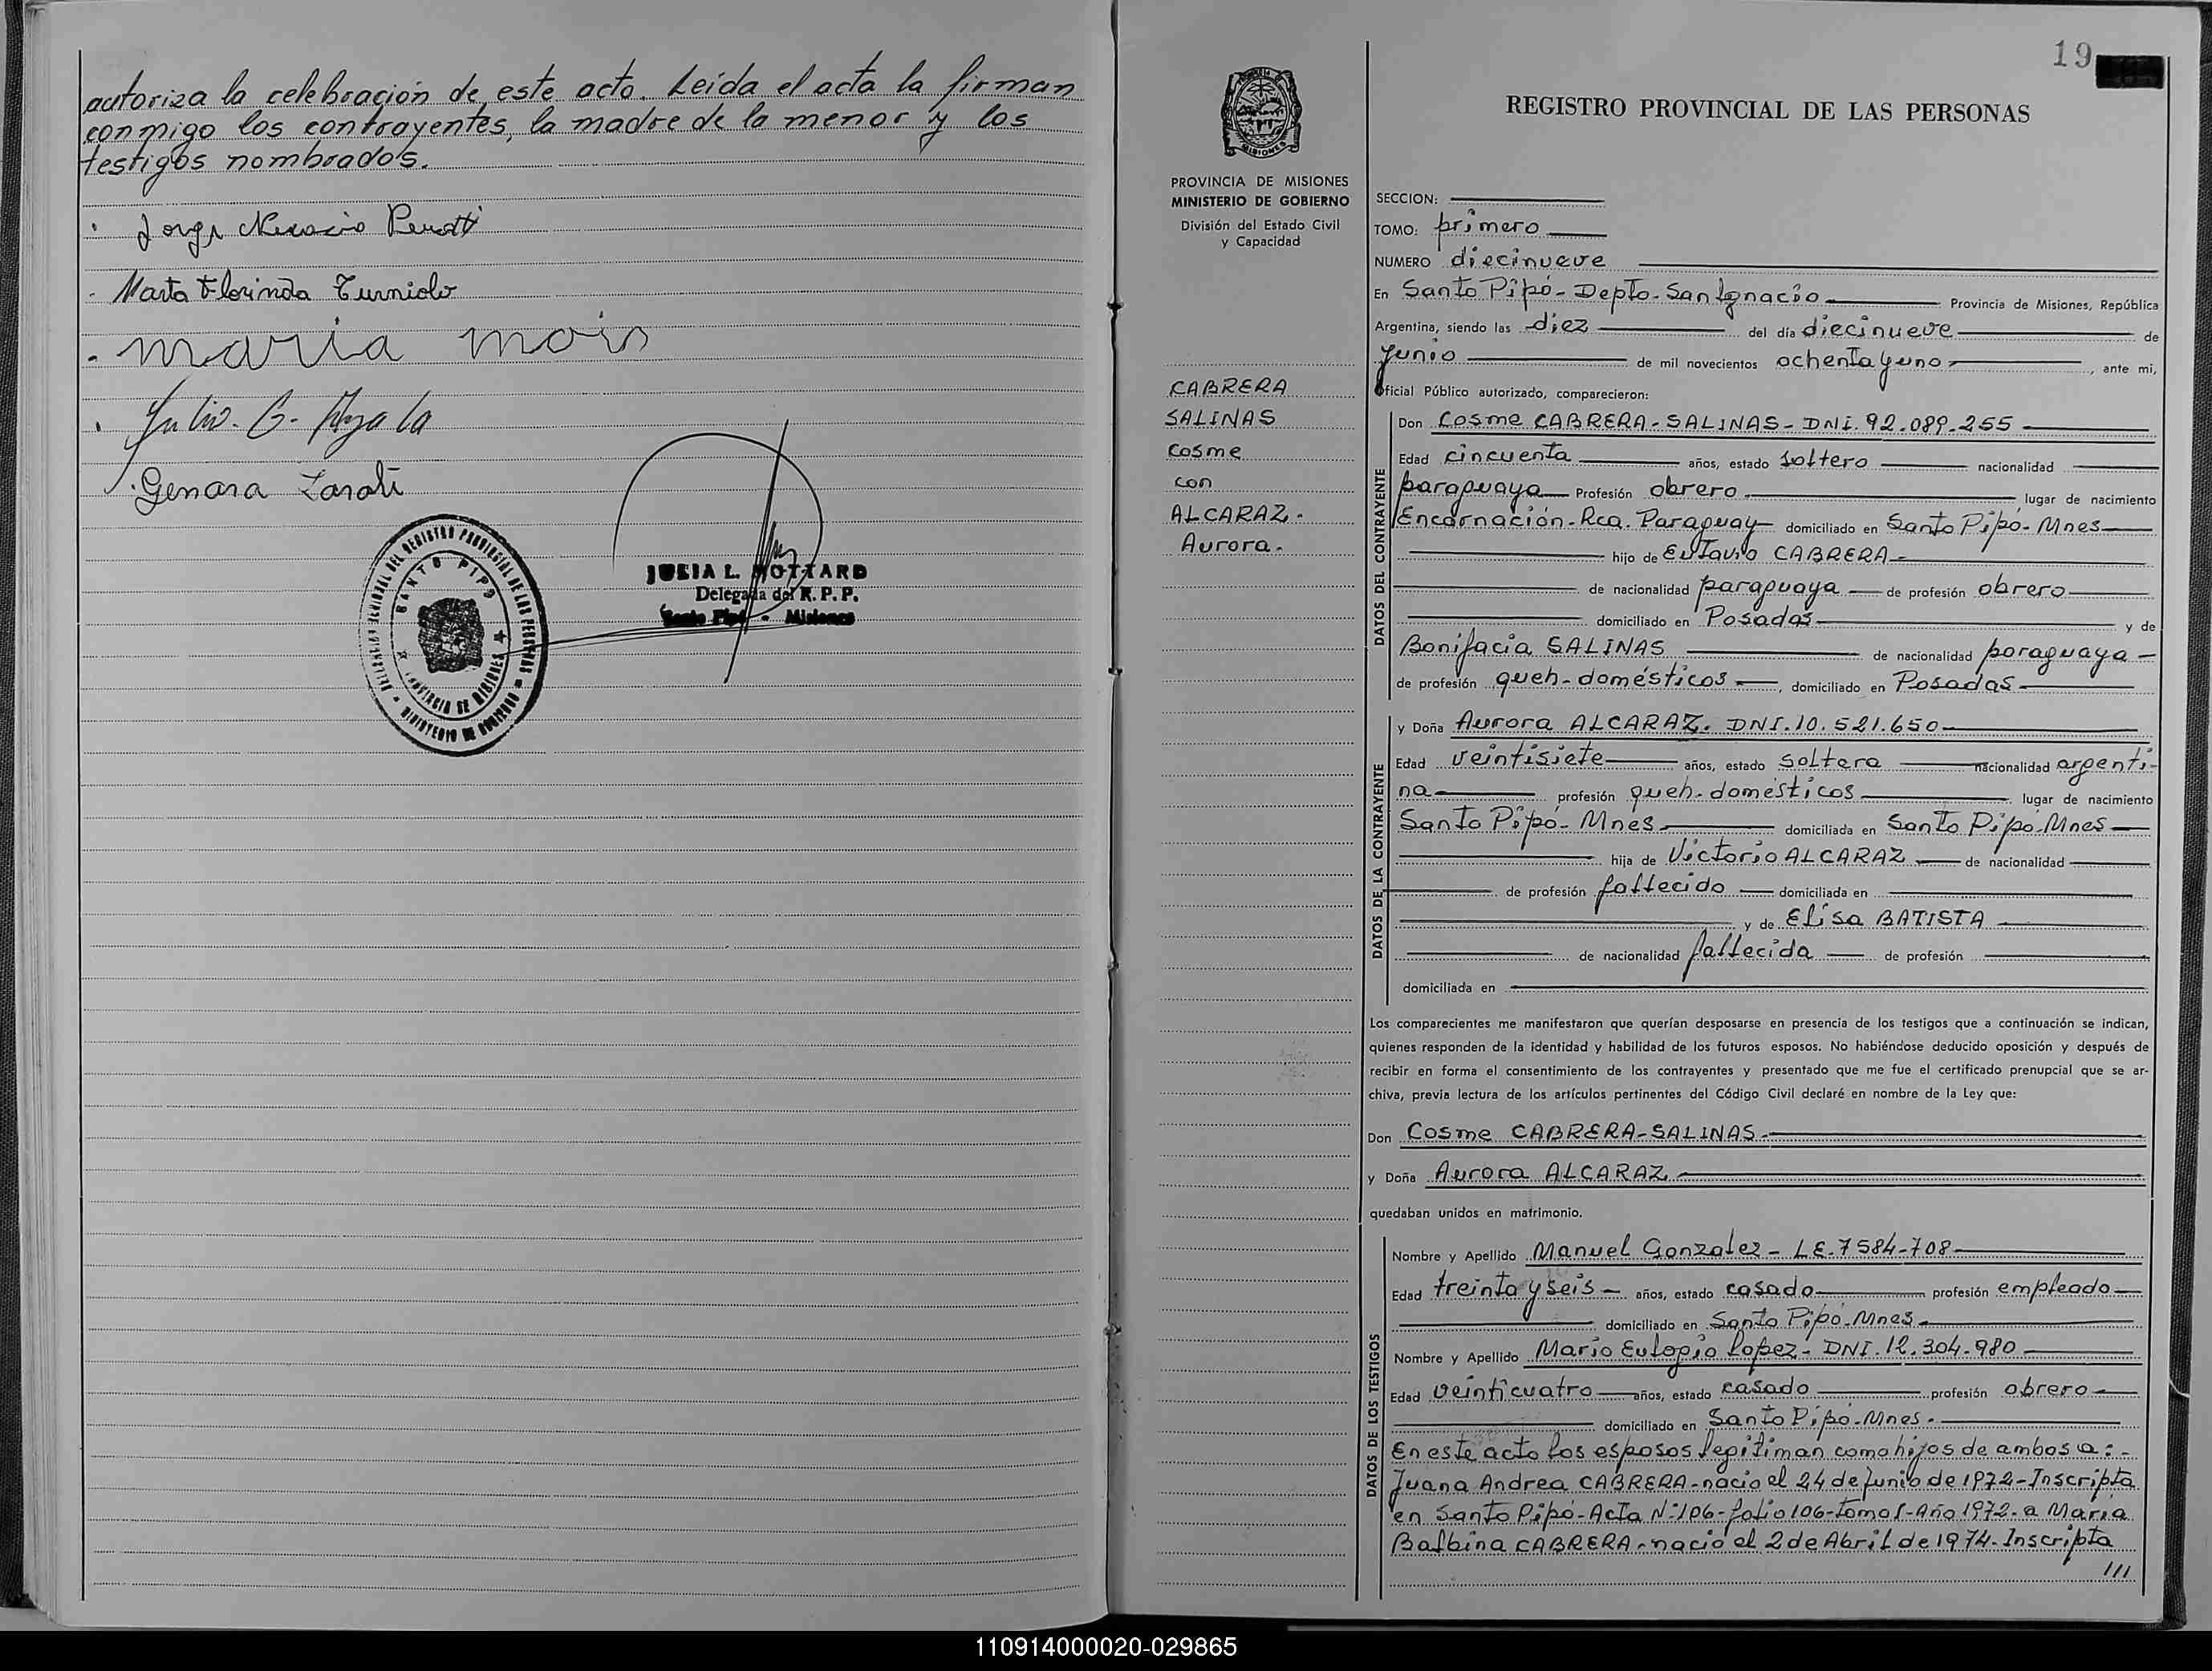 autoriza la celebración de este acto. Leída el acta la firman
conmigo los contrayentes, la madre de la menor y los
testigos nombrados.
Jorge Peratti
Marta Florinda Turniolo
maria
Julio G. Ayala
Genara Zarate
DEL REGISTRO PROVINCIAL DE LAS PERSONAS
SANTO PIPO
PROVINCIA DE MISIONES
MINISTERIO DE GOBIERNO
JULIA L. MOTTARD
Delegada del R. P. P.
Santo Pipó - Misiones
19
PROVINCIA DE MISIONES
MINISTERIO DE GOBIERNO
División del Estado Civil
y Capacidad
CABRERA
SALINAS
Cosme
con
ALCARAZ.
Aurora.
REGISTRO PROVINCIAL DE LAS PERSONAS
SECCION:
TOMO: primero
NUMERO diecinueve
En Santo Pipó- Depto. San Ignacio Provincia de Misiones, República
Argentina, siendo las diez del día diecinueve de
Junio de mil novecientos ochenta y uno, ante mi,
Oficial Público autorizado, comparecieron:
DATOS DEL CONTRAYENTE
Don Cosme CABRERA-SALINAS- DNI. 92.089.255
Edad cincuenta años, estado soltero nacionalidad
paraguaya Profesión obrero lugar de nacimiento
Encarnación-Rca. Paraguay domiciliado en Santo Pipó- Mnes
hijo de CABRERA
de nacionalidad paraguaya de profesión obrero
domiciliado en Posadas y de
Bonifacia SALINAS de nacionalidad paraguaya
de profesión queh-domésticos, domiciliado en Posadas
DATOS DE LA CONTRAYENTE
y Doña Aurora ALCARAZ. DNI. 10.521.650
Edad veintisiete años, estado soltera nacionalidad argenti-
na profesión queh-domésticos lugar de nacimiento
Santo Pipó- Mnes domiciliada en Santo Pipó-Mnes
hija de Victorio ALCARAZ de nacionalidad
de profesión fallecido domiciliada en
y de Elisa BATISTA
de nacionalidad fallecida de profesión
domiciliada en
Los comparecientes me manifestaron que querían desposarse en presencia de los testigos que a continuación se indican,
quienes responden de la identidad y habilidad de los futuros esposos. No habiéndose deducido oposición y después de
recibir en forma el consentimiento de los contrayentes y presentado que me fue el certificado prenupcial que se ar-
chiva, previa lectura de los artículos pertinentes del Código Civil declaré en nombre de la Ley que:
Don Cosme CABRERA-SALINAS.
y Doña Aurora ALCARAZ
quedaban unidos en matrimonio.
DATOS DE LOS TESTIGOS
Nombre y Apellido Manuel Gonzalez - LE. 7584-708
Edad treinta y seis años, estado casado profesión empleado
domiciliado en Santo Pipó-Mnes.
Nombre y Apellido Mario Eulogio Lopez- DNI. 12.304.980
Edad veinticuatro años, estado casado profesión obrero
domiciliado en Santo Pipó-Mnes.
En este acto los esposos legitiman como hijos de ambos a:-
Juana Andrea CABRERA-nacio el 24 de Junio de 1972-Inscripta
en Santo Pipó-Acta Nº:106-folio 106-tomo 1-Año 1972-a Maria
Balbina CABRERA-nació el 2 de Abril de 1974-Inscripta
///
110914000020-029865